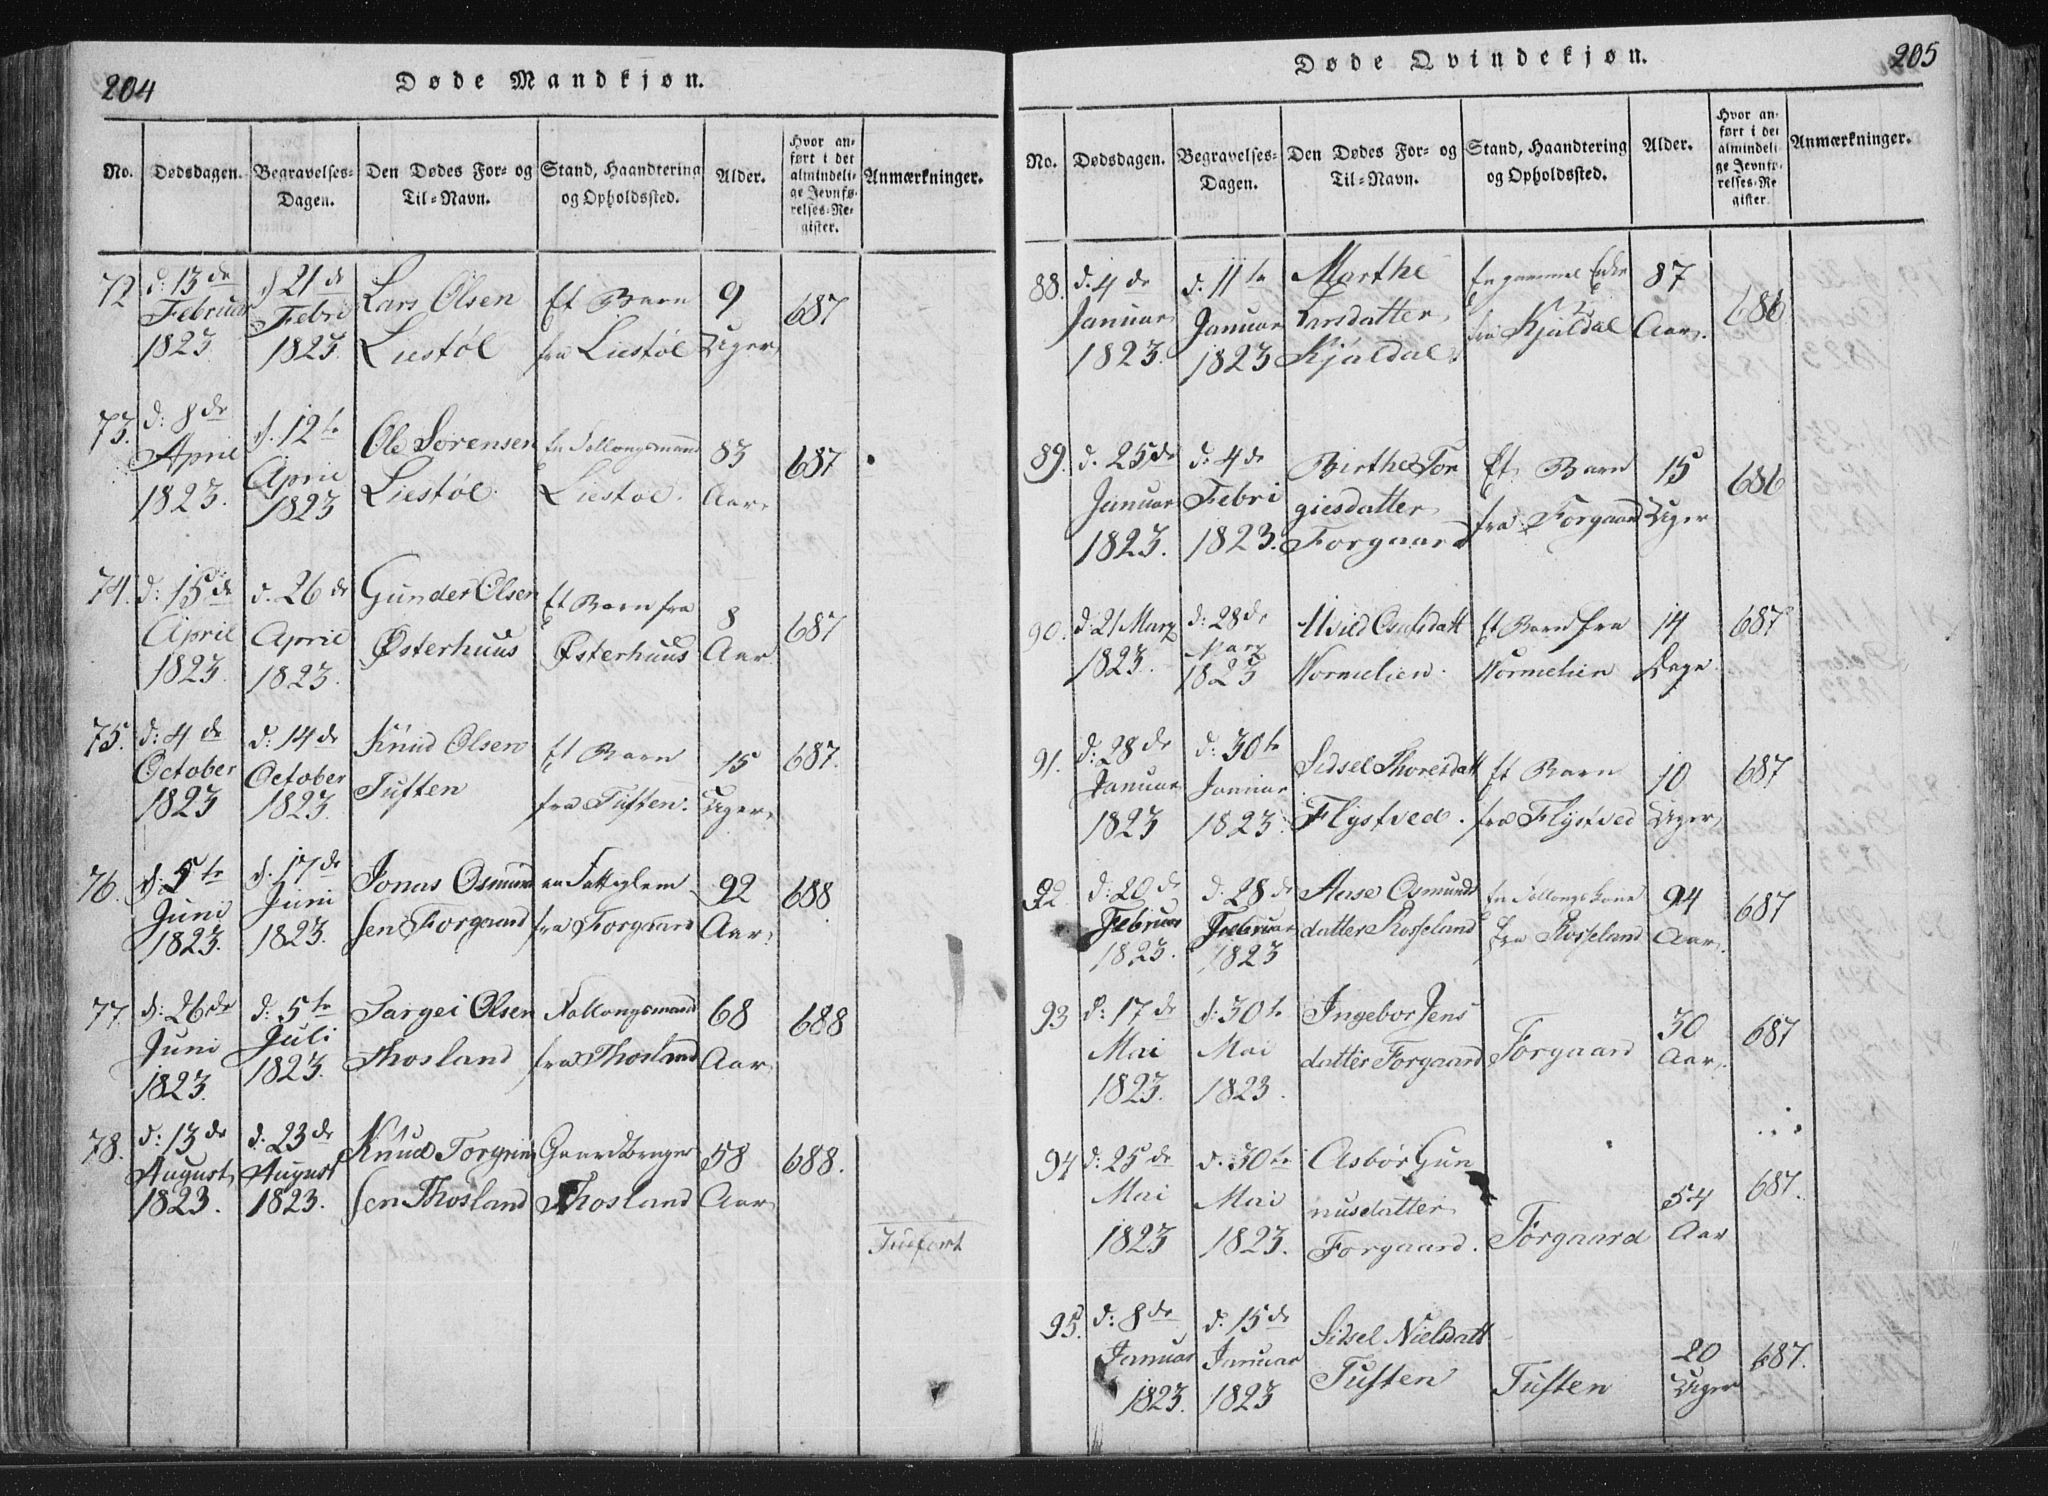 204
Døde Mandkjøn.
No. Dødsdagen. Begravelses-Dagen. Den Dødes For- og Til-Navn. Stand, Haandtering og Opholdssted. Alder. Hvor anført i det almindelige Jevnførelses-Register. Anmærkninger.
72 d: 13de d 21de Lars Olsen Et Barn 9 687
Februar Febri Liestøl fra Liestøl Uger
1823 1823.
73. d: 8de d. 12te Ole Sørensen En Follougsmand 83 687
April April Liestøl. Liestøl. Aar.
1823. 1823
74. d: 15de d. 26de Gunder Olsen Et Barn fra 8 687
April April Østerhuus Østerhuus Aar
1823. 1823.
75. d: 4de d: 14de Knud Olsen Et Barn 15 687.
October October Tuften fra Tuften. Uger.
1823 1823.
76. d: 5te d. 17de Jonas Osmund en Fattiglem 92 688
Juni Juni sen Forgaard fra Forgaard Aar.
1823. 1823.
77. d: 26de d: 5te Targei Olsen Follougsmand 68 688
Juni Juli Thosland fra Thosland Aar.
1823. 1823.
78. d: 13de d. 23de Knud Torgrim Gaardbruger 58 688.
August August sen Thosland Thosland Aar
1823. 1823.
Indført
205
Døde Qvindekjøn.
No. Dødsdagen. Begravelses-Dagen. Den Dødes For- og Til-Navn. Stand, Haandtering og Opholdssted. Alder. Hvor anført i det almindelige Jevnførelses-Register. Anmærkninger.
88. d. 4de d. 11te Marthe En gammel Enke 87 686
Januar Januar Larsdatter fra Kjäldal Aar.
1823. 1823 Kjäldal.
89. d. 25de d: 4de Birthe Tor Et Barn 15 686
Januar Febri giesdatter fra Forgaard Uger
1823. 1823. Forgaard
90. d: 21 Marz d: 28de Et Barn fra 14 687
1823. Marz Wormelien. Wormelien Dage
1823
91. d: 28de d: 30te Sidsel Thoresdatt Et Barn 10 687
Januar Januar Flystved. fra Flystved Uger
1823 1823.
92. d: 20de d. 28de Anse Osmunds En Follougskone 94 687
Februar Februar datter Rosseland fra Rosseland Aar.
1823. 1823
93 d: 17de d: 30te Ingebor Jens Forgaard 30 687
Mai Mai datter Forgaard Aar.
1823. 1823.
94 d: 25de d. 30te Asbör Gun Forgaard 54 687.
Mai Mai nusdatter Aar
1823 1823. Forgaard.
95. d: 8de d: 15de Sidsel Nielsdatt Tuften 20 687.
Januar Januar Tuften Uger
1823. 1823